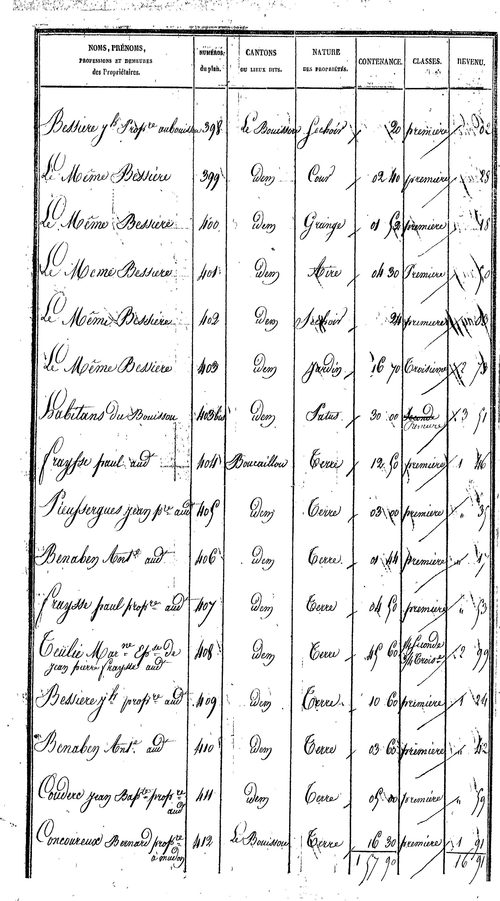 NOMS, PRÉNOMS, PROFESSIONS ET DEMEURES des Propriétaires. NUMÉROS du plan. CANTONS OU LIEUX DITS. NATURE DES PROPRIÉTÉS. CONTENANCE. CLASSES. REVENU.
Bessiere Prop.re au bouissou 398 Le Bouissou Sechoir 20 premiere 02
Le Même Bessiere 399 idem Cour 02 40 premiere
Le Même Bessiere 400 idem Grange 01 52 premiere 18
Le Même Bessiere 401 idem Aire 04 30 Premiere 50
Le Même Bessiere 402 idem Sechoir 24 premiere
Le Même Bessiere 403 idem Jardin 16 70 Troisieme 2
Habitans du Bouissou 403 bis idem Patus 30 00 premiere 3 51
fraysse paul aud.t 404 Boucaillou Terre 12 50 premiere 1 46
Pieussergues jean p.re aud.t 405 idem Terre 03 00 premiere " 35
Benaben Ant.e aud.t 406 idem Terre 01 44 premiere " 17
fraysse paul prop.re aud.t 407 idem Terre 04 50 premiere " 53
Teulié Mar.ne Ep.se de jean pierre fraysse aud.t 408 idem Terre 45 60 Seconde Trois.e 2 99
Bessiere prop.re aud.t 409 idem Terre 10 60 premiere 1 24
Benaben Ant.e aud.t 410 idem Terre 03 60 premiere " 42
Couderc jean Bap.te prop.re aud.t 411 idem Terre 05 00 premiere " 59
Concoureux Bernard prop.re 412 Le Bouissou Terre 16 30 premiere 1 91
1 57 90 16 91